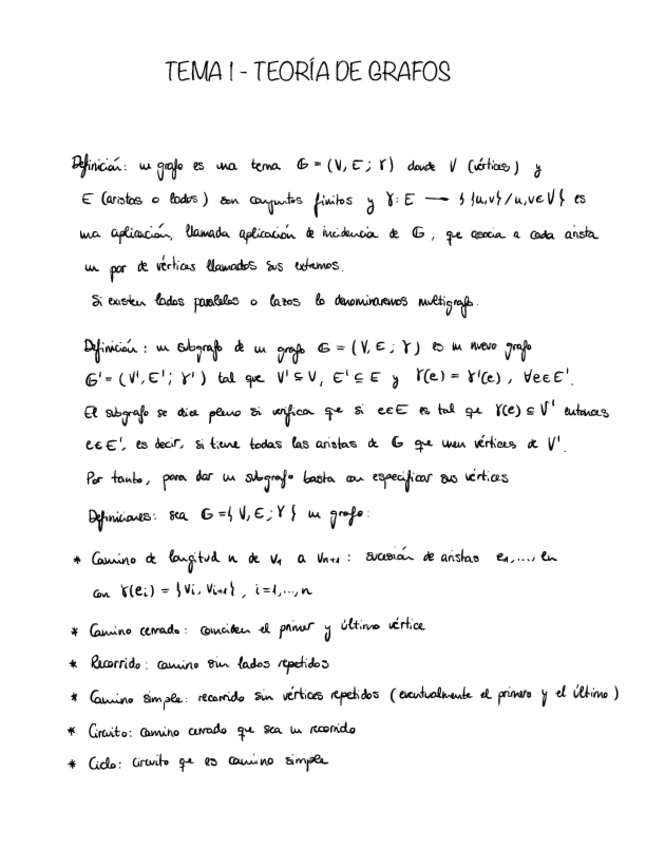 TEMA 1 - TEORÍA DE GRAFOS
Definición: un grafo es una terna G = (V, E; γ) donde V (vértices) y
E (aristas o lados) son conjuntos finitos y γ: E → {{u,v} / u,v∈V} es
una aplicación, llamada aplicación de incidencia de G, que asocia a cada arista
un par de vértices llamados sus extremos.
Si existen lados paralelos o lazos lo denominaremos multigrafo.
Definición: un subgrafo de un grafo G = (V, E; γ) es un nuevo grafo
G' = (V', E'; γ') tal que V' ⊆ V, E' ⊆ E y γ(e) = γ'(e), ∀e∈E'.
El subgrafo se dice pleno si verifica que si e∈E es tal que γ(e) ⊆ V' entonces
e∈E', es decir, si tiene todas las aristas de G que unen vértices de V'.
Por tanto, para dar un subgrafo basta con especificar sus vértices
Definiciones: sea G = { V, E; γ } un grafo:
* Camino de longitud n de v₁ a vₙ₊₁ : sucesión de aristas e₁,..., eₙ
con γ(eᵢ) = {vᵢ, vᵢ₊₁}, i=1,...,n
* Camino cerrado: coinciden el primer y último vértice
* Recorrido: camino sin lados repetidos
* Camino simple: recorrido sin vértices repetidos (eventualmente el primero y el último)
* Circuito: camino cerrado que sea un recorrido
* Ciclo: circuito que es camino simple